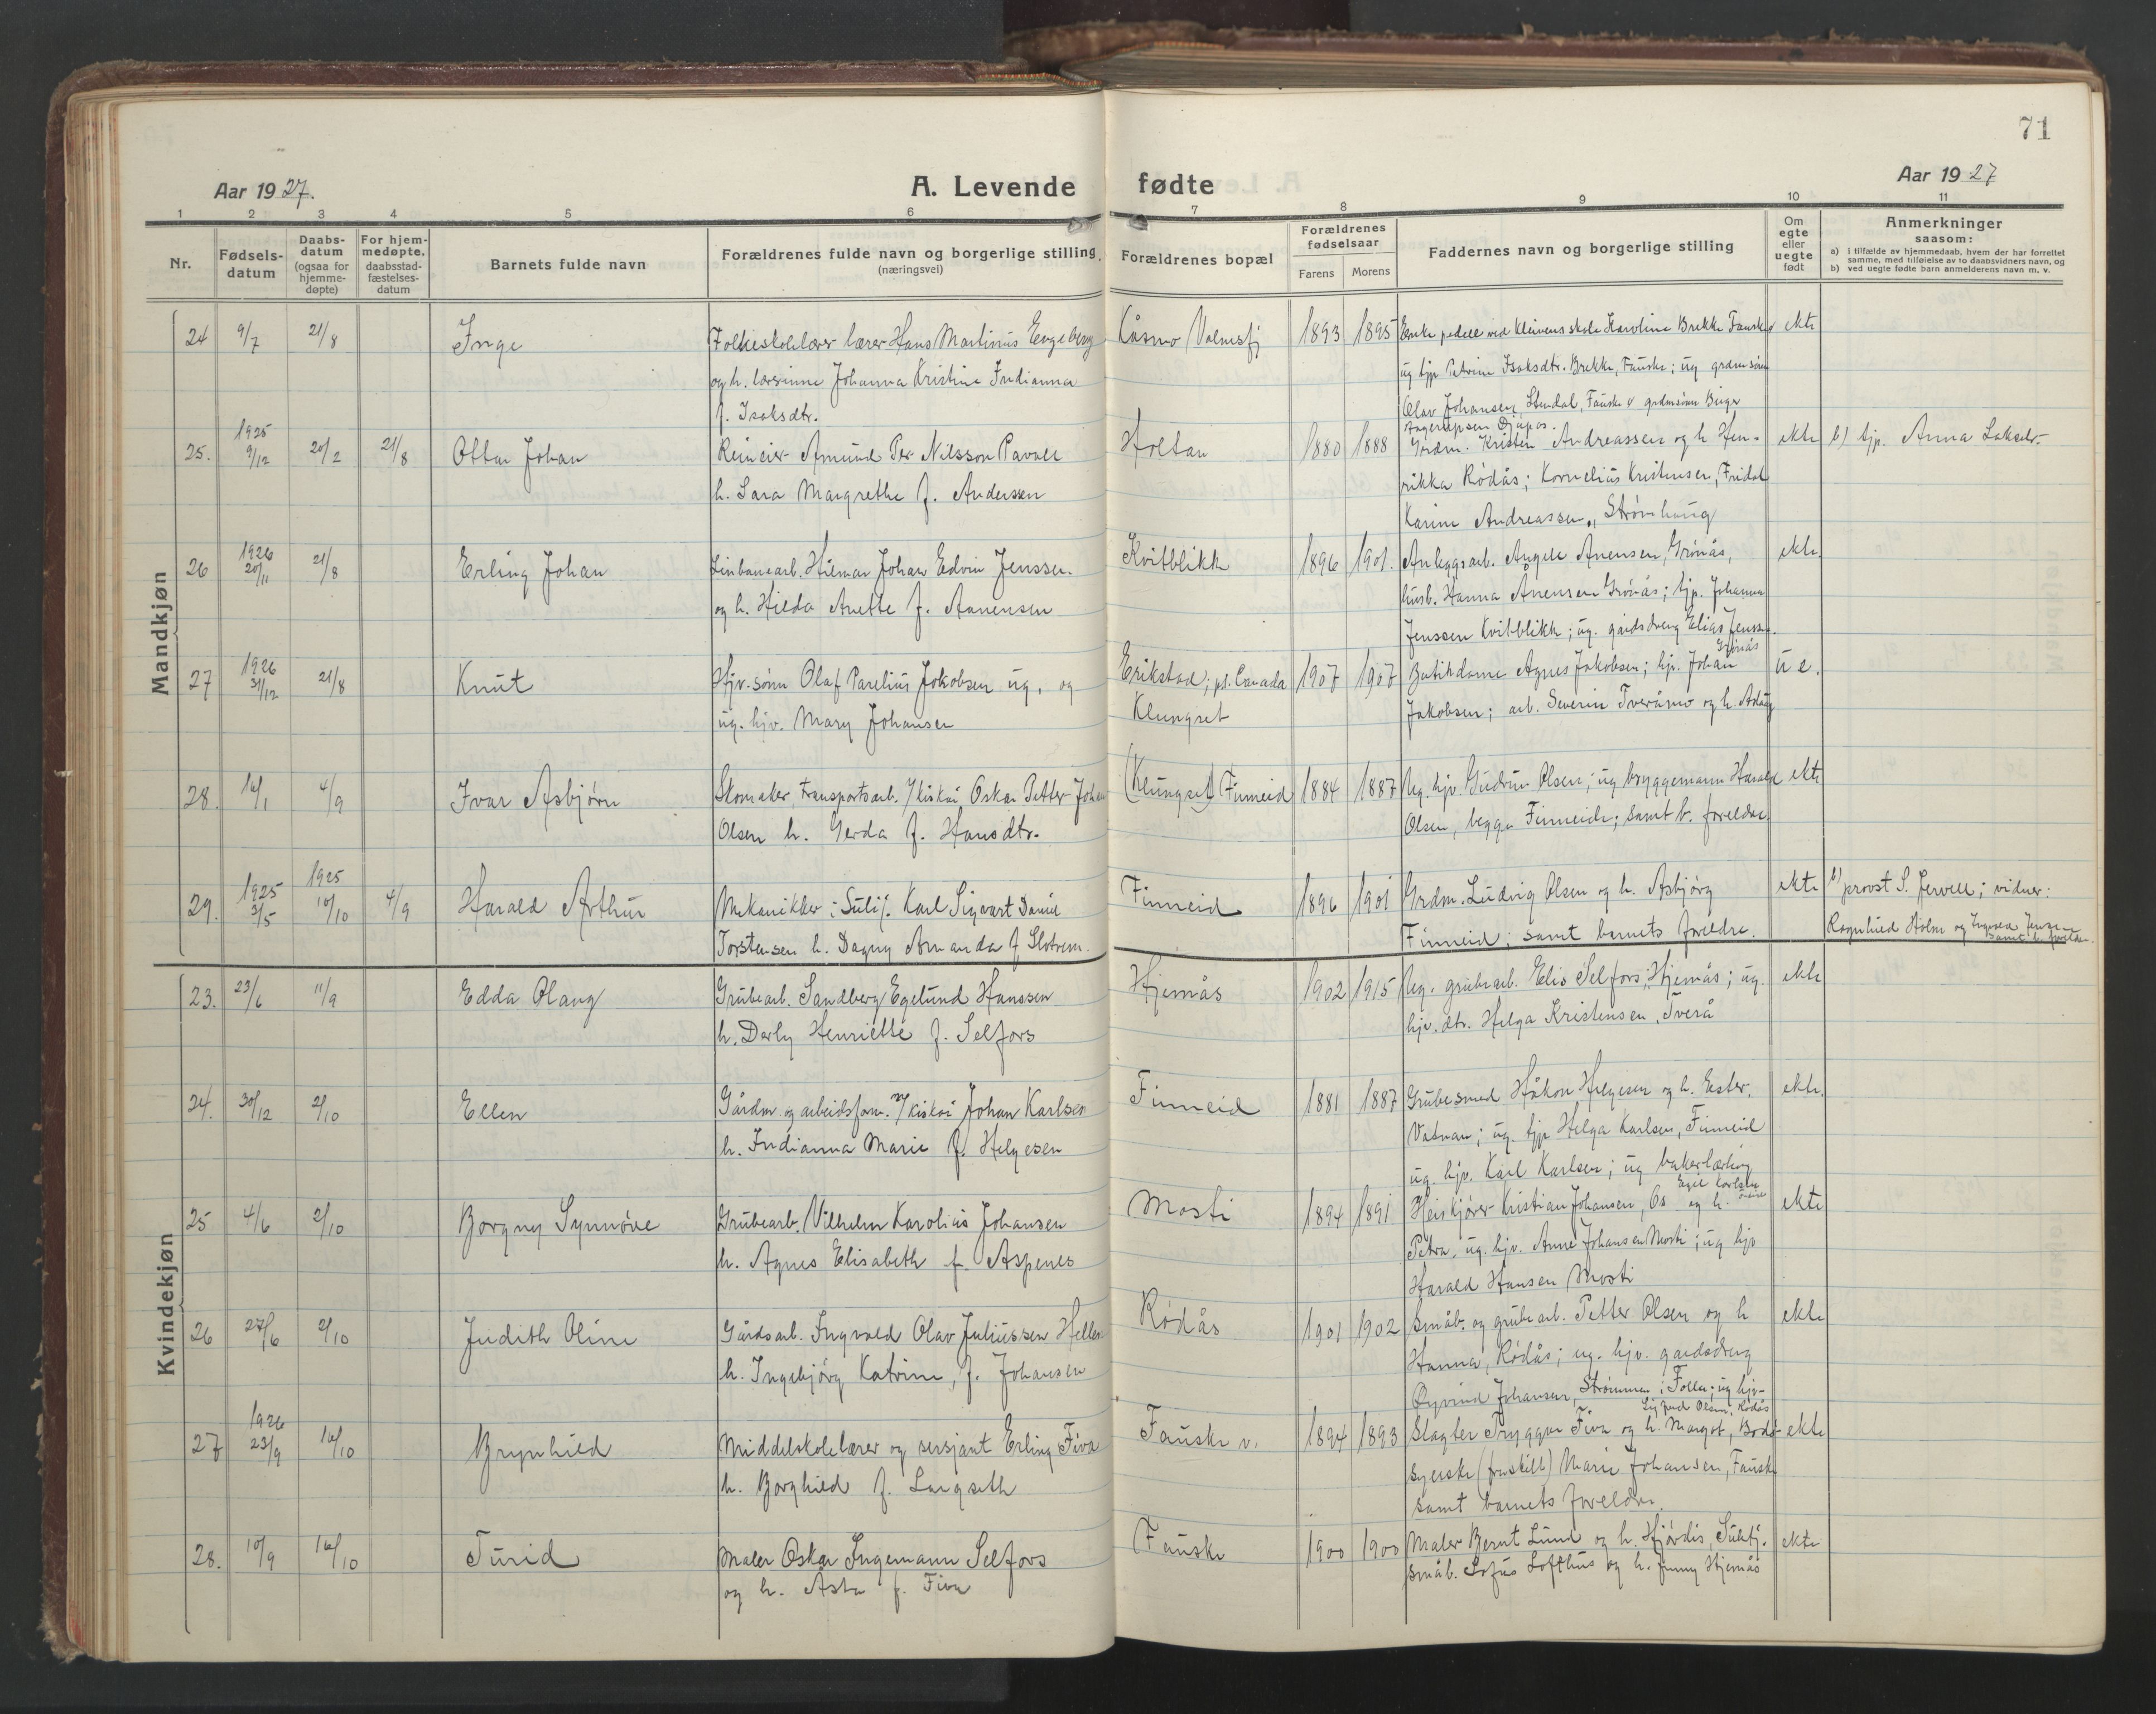 71
Aar 1927.
A. Levende fødte
Aar 1927
1 2 3 4 5 6 7 8 9 10 11
Nr.
Fødsels-
datum
Daabs-
datum
(ogsaa for
hjemme-
døpte)
For hjem-
medøpte,
daabsstad-
fæstelses-
datum
Barnets fulde navn
Forældrenes fulde navn og borgerlige stilling
(næringsvei)
Forældrenes bopæl
Forældrenes
fødselsaar
Farens
Morens
Faddernes navn og borgerlige stilling
Om
egte
eller
uegte
født
Anmerkninger
saasom:
a) i tilfælde av hjemmedaab, hvem der har forrettet
samme, med tilføielse av to daabsvidners navn, og
b) ved uegte fødte barn anmelderens navn m. v.
Mandkjøn
24 9/7 21/8 Inge
Folkeskolelærer lærer Hans Martinus Engeberg
og h. lærerinne Johanna Kristine Indianna
f. Isaksdtr.
Kåsmo Valnesfj 1893 1895
Enke pedell ved Kleivens skole Karoline Brekke Fauske
ug tjp Petrine Isaksdtr. Brekke, Fauske; ug grdm sønn
Olav Johansen, Stendal, Fauske & grdmsønn Birger
ekte
25. 1925 9/12 20/2 21/8 Ottar Johan
Reineier Amund Per Nilsson Pavall
h. Sara Margrethe f. Andersen
Holtan 1880 1888
Grdm. Kristen Andreassen og h Hen-
rikka Rödås; Kornelius Kristensen, Fridal
Karine Andreassen, Strømhaug
ekte b) tjp. Anna Lakselv
26 1926 20/11 21/8 Erling Johan
Linbanearb. Hilmar Johan Edvin Jenssen
og h. Hilda Anette f. Anensen
Kvitblikk 1896 1901.
Anleggsarb. Angell Anensen, Grönås,
husb. Hanna Anensen Grönås; tjp. Johanna
Jenssen Kvitblikk; ug. gårdsdreng Elias Jenssen
Grönås
ekte.
27 1926 31/12 21/8 Knut
Hjv. sønn Olaf Parelius Jakobsen ug. og
ug. hjv. Mary Johansen
Erikstad; pt. Canada
Klungset
1907 1907
Butikdame Agnes Jakobsen; hjv. Johan
Jakobsen; arb. Severin Tveråmo og h. Aslaug
u e.
28. 16/1 4/9 Ivar Asbjörn
Skomaker, transportsarb. v/ kiskai Oskar Petter Johan
Olsen h. Gerda f. Hansdtr.
(Klungset) Finneid 1884 1887
Ug. hjv. Gudrun Olsen; ug bryggemann Harald
Olsen, begge Finneid; samt b. foreldre.
ekte
29. 1925 3/5 1925 10/10 4/9 Harald Arthur
Mekanikker i Sulitj. Karl Sigvart Daniel
Torstensen h. Dagny Amanda f. Slotrem.
Finneid 1896 1901
Grdm. Ludvig Olsen og h. Asbjörg
Finneid; samt barnets foreldre.
ekte
b) provst S. Jervell; vidner:
Ragnhild Holm og Ingvald Jensen
samt b. foreldre.
Kvindekjøn
23. 23/6 11/9 Edda Olaug
Grubearb. Sandberg Egelund Hanssen
h. Derly Henriette f. Selfors
Hjemås 1902 1915
Ug. grubearb. Elis Selfors; Hjemås; ug.
hjv. dtr. Helga Kristensen, Tverå
ekte
24. 30/12 2/10 Ellen
Gårdm og arbeidsform. v/ kiskai Johan Karlsen
h. Indianna Marie f. Helgesen
Finneid 1881 1887
Grubesmed Håkon Helgesen og h. Ester,
Vatnan; ug. tjp Helga Karlsen, Finneid
ug. hjv. Karl Karlsen; ug bakerlærling
Egil Karlsen
ekte.
25 4/6 2/10 Borgny Synnöve
Grubearb. Vilhelm Karolius Johansen
h. Agnes Elisabeth f. Aspenes
Mosti 1894 1891
Heiskjører Kristian Johansen, Os og h.
Petra, ug. hjv. Anne Johansen Mosti; ug hjv
Harald Hansen Mosti
ekte
26 27/6 2/10 Judith Oline
Gårdsarb. Ingvald Olav Juliussen Hellen
h. Ingebjörg Katrine, f. Johansen
Rödås 1901 1902
småb. og grubearb. Petter Olsen og h
Hanna, Rödås; ug. hjv. gårdsdreng
Øyvind Johansen, Strømmen i Folla; ug hjv-
Sigfred Olsen, Rödås
ekte
27 1926 23/9 16/10 Brynhild
Middelskolelærer og sersjant Erling Fiva
h. Borghild f. Langseth
Fauske v. 1894 1893
Slagter Tryggve Fiva og h. Margot, Bodö-
syerske (fraskilt) Marie Johansen, Fauske
samt barnets foreldre.
ekte
28. 10/9 16/10 Turid
Maler Oskar Ingemann Selfors
og h. Asta f. Fiva
Fauske 1900 1900
Maler Bernt Lund og h. Hjördis, Sulitj.
småb. Sofus Lofthus og h. Jenny Hjemås
ekte